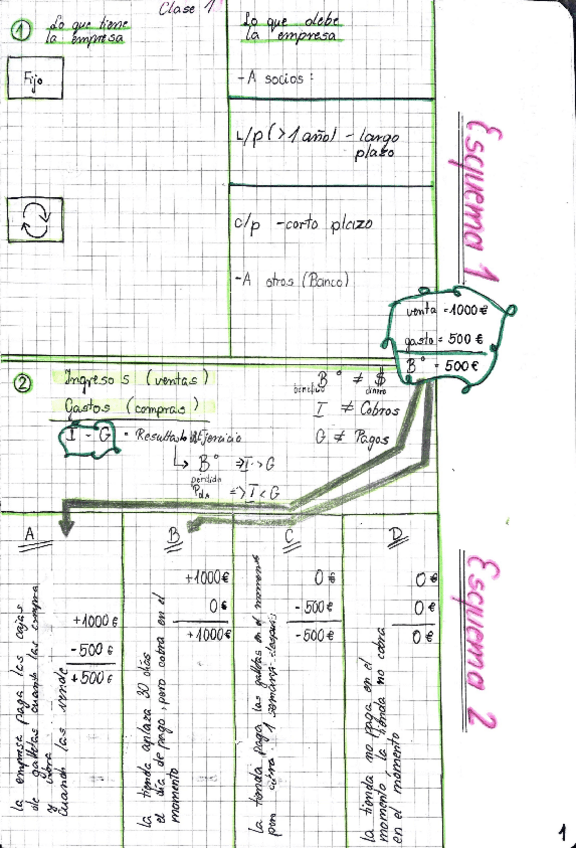 Clase 1
① Lo que tiene
la empresa
Fijo
Lo que debe
la empresa
-A socios:
L/p (>1 año) - largo
plazo
c/p - corto plazo
-A otros (Banco)
Esquema 1
venta = 1000€
gasto = 500€
Bº = 500€
② Ingresos (ventas)
Gastos (compras)
I - G = Resultado del Ejercicio
Bº => I > G
pérdida
Pda => I < G
Bº ≠ $
dinero
I ≠ Cobros
G ≠ Pagos
Esquema 2
A
la empresa paga las cajas
de galletas cuando las compra
y cobra
cuando las vende
+1000€
-500€
+500€
B
la tienda aplaza 30 días
el día de pago, pero cobra en el
momento
+1000€
0€
+1000€
C
la tienda paga las galletas en el momento
pero cobra 1 semana después
0€
-500€
-500€
D
la tienda no paga en el
momento y la tienda no cobra
en el momento
0€
0€
0€
1